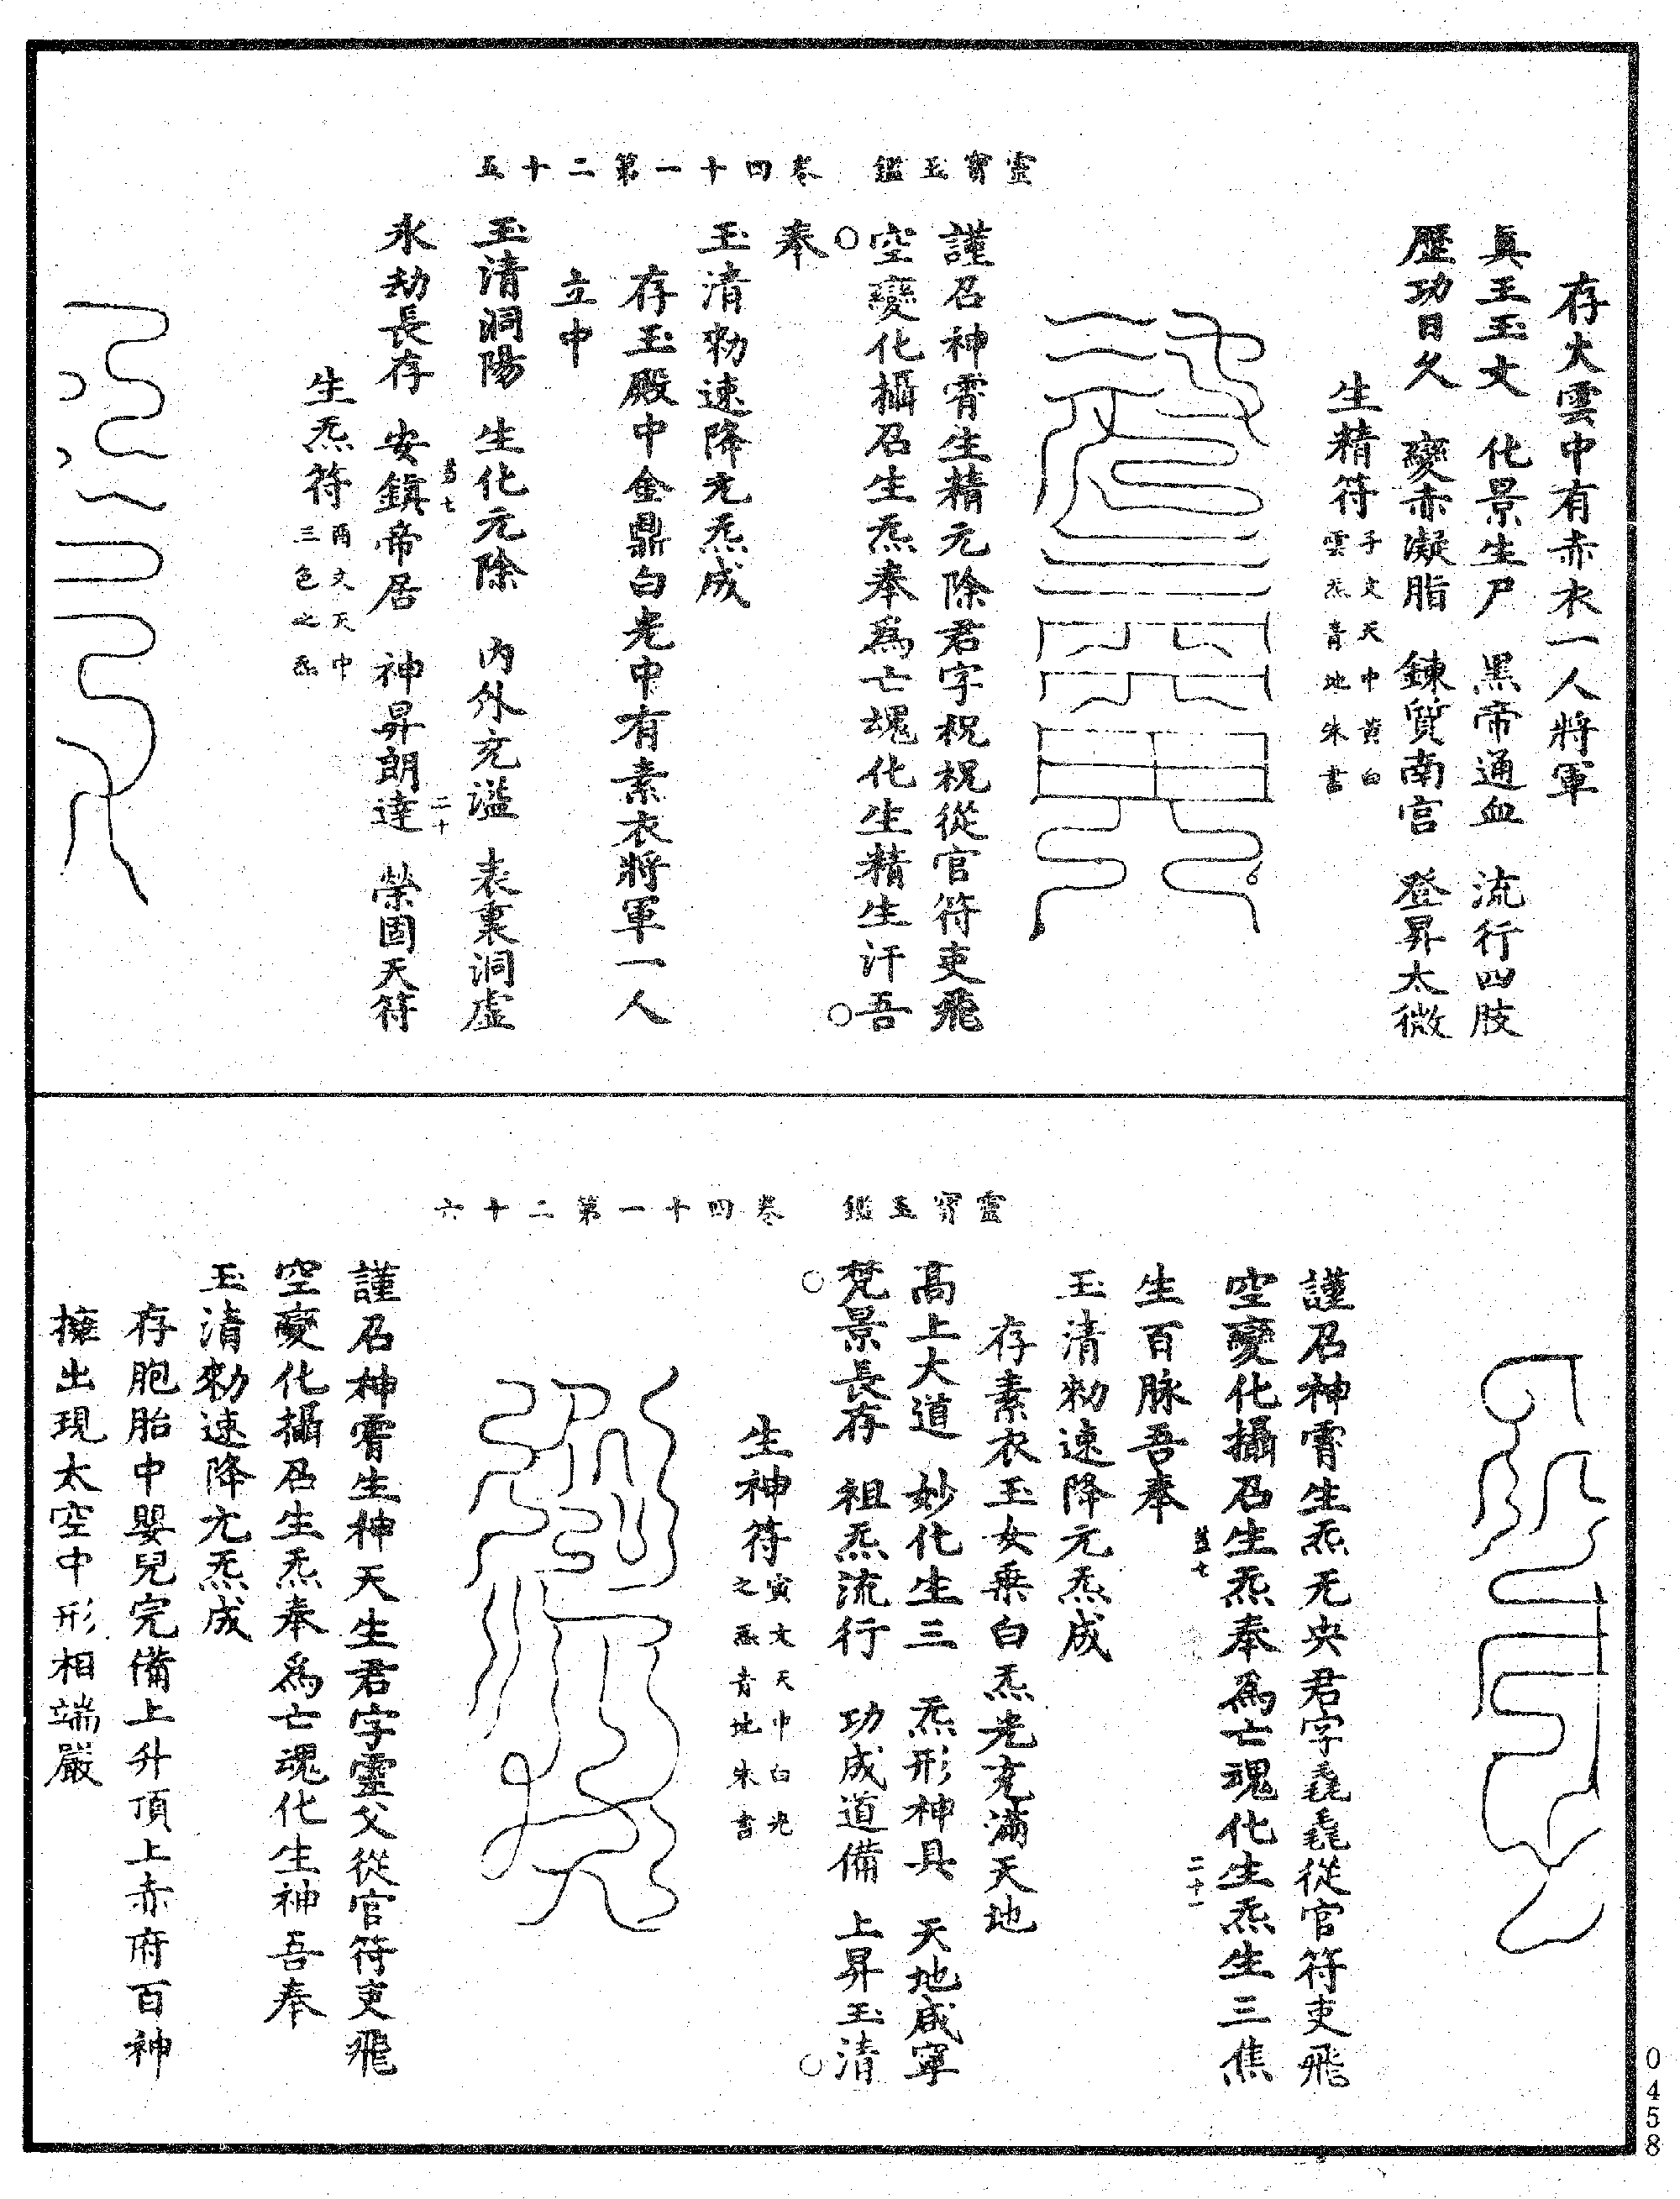 靈寶玉鑑　卷四十一第二十五
存大雲中有赤衣一人將軍
眞王玉文　化景生尸　黑帝通血　流行四肢
歷功日久　變赤凝脂　鍊質南宮　登昇太微
生精符子文天中黃白雲炁青地朱書
謹召神霄生精元除君字柷柷從官符吏飛
空變化攝召生炁奉爲亡魂化生精生汗吾
奉
玉清勑速降元炁成
存玉殿中金鼎白光中有素衣將軍一人
立中
玉清洞陽　生化元除　內外充溢　表裏洞虛
二十
永劫長存　安鎮帝居　神昇朗達　榮固天符
生炁符酉文天中三色之炁
靈寶玉鑑　卷四十一第二十六
謹召神霄生炁无央君字毳毳從官符吏飛
空變化攝召生炁奉爲亡魂化生炁生三焦
二十一
生百脉吾奉
玉清勑速降元炁成
存素衣玉女乗白炁光充滿天地
高上大道　妙化生三　炁形神具　天地咸寧
梵景長存　祖炁流行　功成道備　上昇玉清
生神符寅文天中白光之炁青地朱書
謹召神霄生神天生君字靈父從官符吏飛
空變化攝召生炁奉爲亡魂化生神吾奉
玉清勑速降元炁成
存胞胎中嬰兒完備上升頂上赤府百神
擁出現太空中形相端嚴
0458